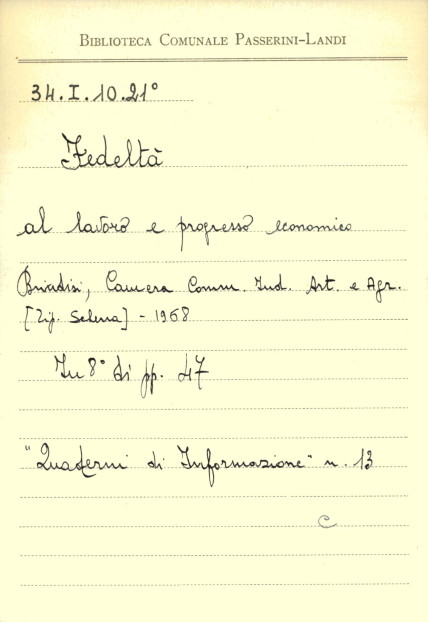 BIBLIOTECA COMUNALE PASSERINI-LANDI
34.I.10.21°
Fedeltà
al lavoro e progresso economico
Brindisi, Camera Comm. Ind. Art. e Agr.
[Tip. Schena] - 1968
In 8° di pp. 47
"Quaderni di Informazione" n. 13
C